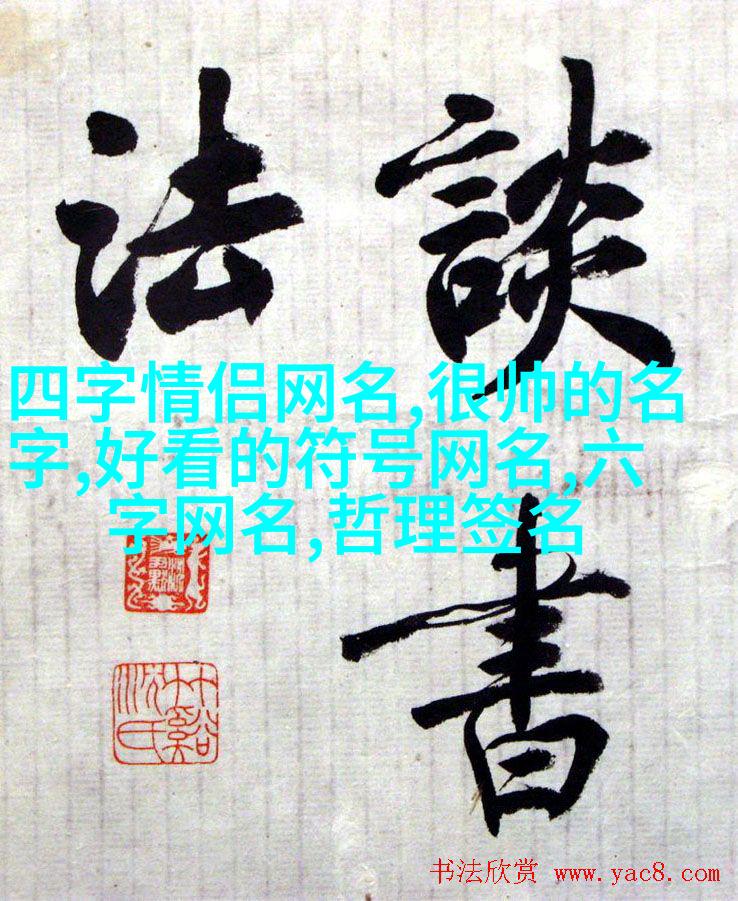 談書
法
四字情侣网名,很帅的名
字,好看的符号网名,六
字网名,哲理签名
书法欣赏 www.yac8.com